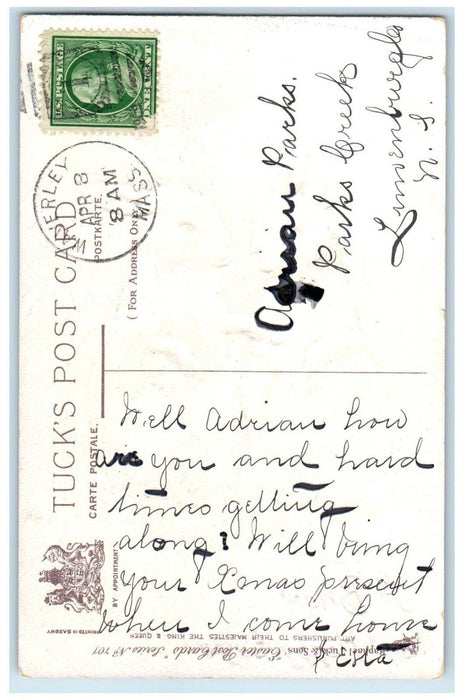 U.S. POSTAGE
ONE CENT
WAVERLEY
APR 8
8 AM
MASS
TUCK'S POST CARD
CARTE POSTALE.
POSTKARTE.
( For Address Only )
Adrian Parks.
Parks Creek
Lunenburg Co
N. S.
Well Adrian how
are you and hard
times getting
along? Will bring
your Xmas present
when I come home
Zeta
BY APPOINTMENT.
PRINTED IN SAXONY
Raphael Tuck & Sons' "Easter" Post Cards Series No 101
ART PUBLISHERS TO THEIR MAJESTIES THE KING & QUEEN